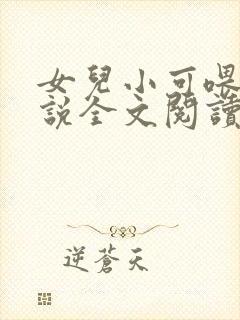 女兒小可喂
說全文閱讀
逆蒼天